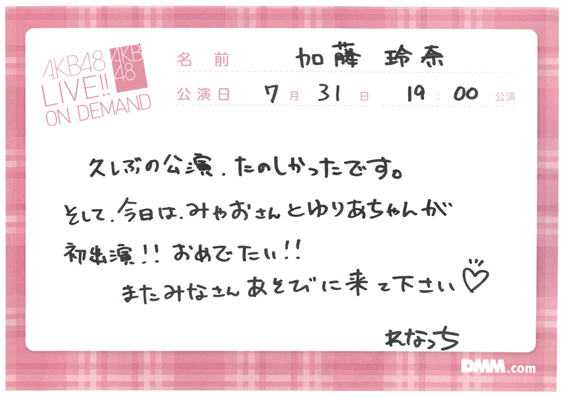 AKB48
LIVE!!
ON DEMAND
AKB
48
名前 加藤 玲奈
公演日 7月31日 19:00公演
久しぶの公演、たのしかったです。
そして、今日は、みゃおさんとゆりあちゃんが
初出演!! おめでたい!!
またみなさんあそびに来て下さい♡
れなっち
DMM.com